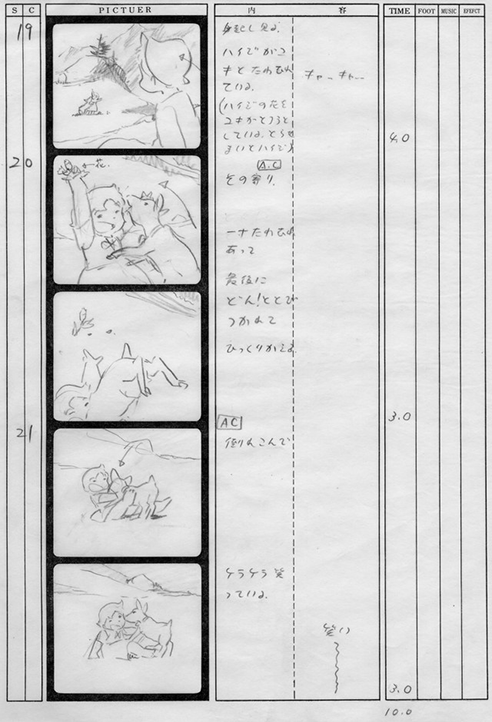 S C PICTUER 内 容 TIME FOOT MUSIC EFFECT
19
身起し見る。
ハイジがユ
キとたわむれ
ている。
キャーキャー
(ハイジの花を
ユキがとろうと
している。とらせ
まいとハイジ)
4.0
20
花
A.C
その寄り。
一寸たわむれ
あって
最後に
どーん!ととび
つかれて
ひっくりかえる。
3.0
21
AC
倒れこんで
ケラケラ笑
っている。
笑い
3.0
10.0